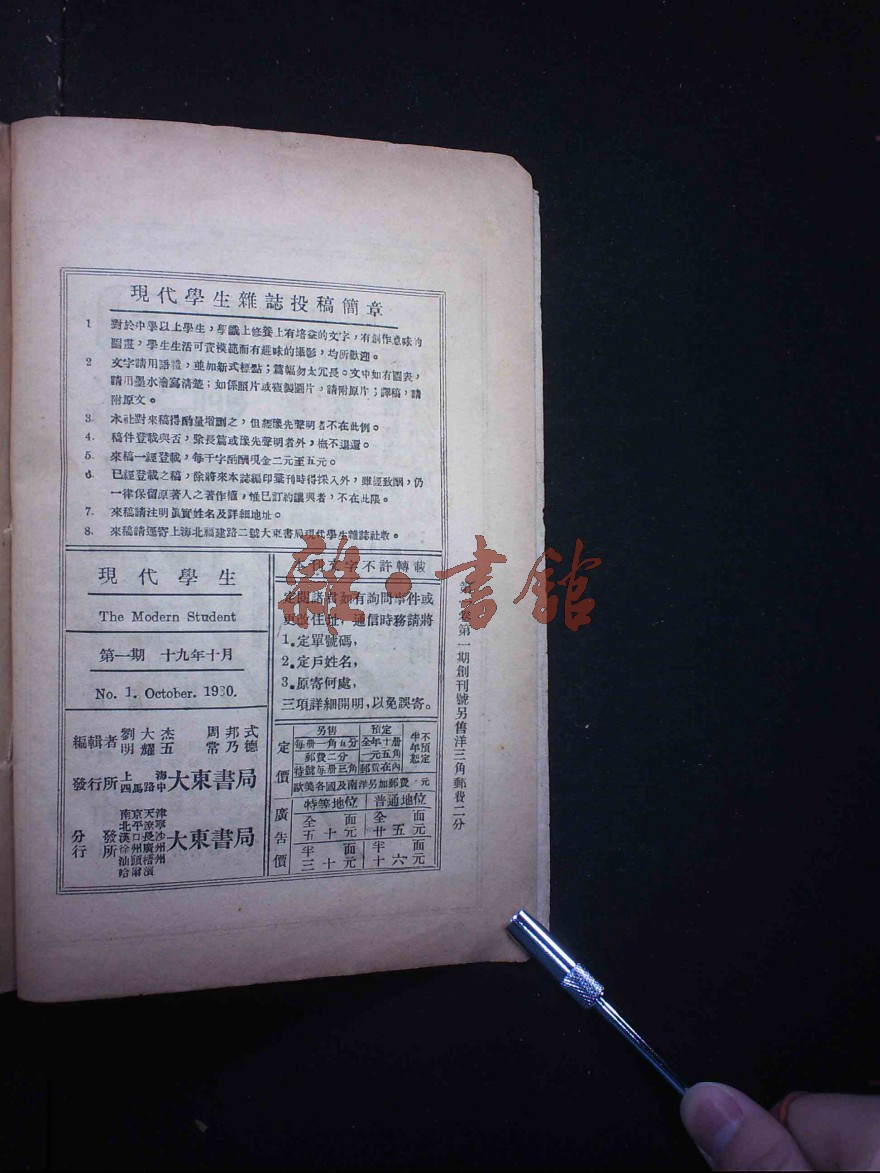 現代學生雜誌投稿簡章
1 對於中學以上學生，學識上修養上有培益的文字，有創作意味的
圖畫，學生生活可資模範而有趣味的攝影，均所歡迎。
2 文字請用語體，並加新式標點；篇幅勿太冗長。文中如有圖表，
請用墨水繪寫清楚；如係照片或複製圖片，請附原片；譯稿，請
附原文。
3. 本社對來稿得酌量增刪之，但經豫先聲明者不在此例。
4. 稿件登載與否，除長篇或豫先聲明者外，概不退還。
5. 來稿一經登載，每千字酌酬現金二元至五元。
6. 已經登載之稿，除將來本誌編印彙刊時得採入外，雖經致酬，仍
一律保留原著人之著作權，惟已訂約讓與者，不在此限。
7. 來稿請注明眞實姓名及詳細地址。
8. 來稿請逕寄上海北福建路二號大東書局現代學生雜誌社收。
現代學生
The Modern Student
第一期 十九年十月
No. 1. October. 1930.
編輯者 劉大杰 周邦式
明耀五 常乃德
發行所 上海四馬路中 大東書局
分發行所
南京天津
北平遼寧
漢口長沙
徐州廣州
汕頭梧州
哈爾濱
大東書局
本刊文字不許轉載
定閱諸君如有詢問事件或
更改住址，通信時務請將
1.定單號碼，
2.定戶姓名，
3.原寄何處，
三項詳細開明，以免誤寄。
定價
另售 預定
每冊一角五分 全年十冊
郵費二分 一元五角
特號每冊三角 郵費在內
半年不預定
歐美各國及南洋另加郵費一元
廣告價
特等地位 普通地位
全面 全面
五十元 廿五元
半面 半面
三十元 十六元
卷第一期創刊號另售洋三角郵費二分
雜·書館